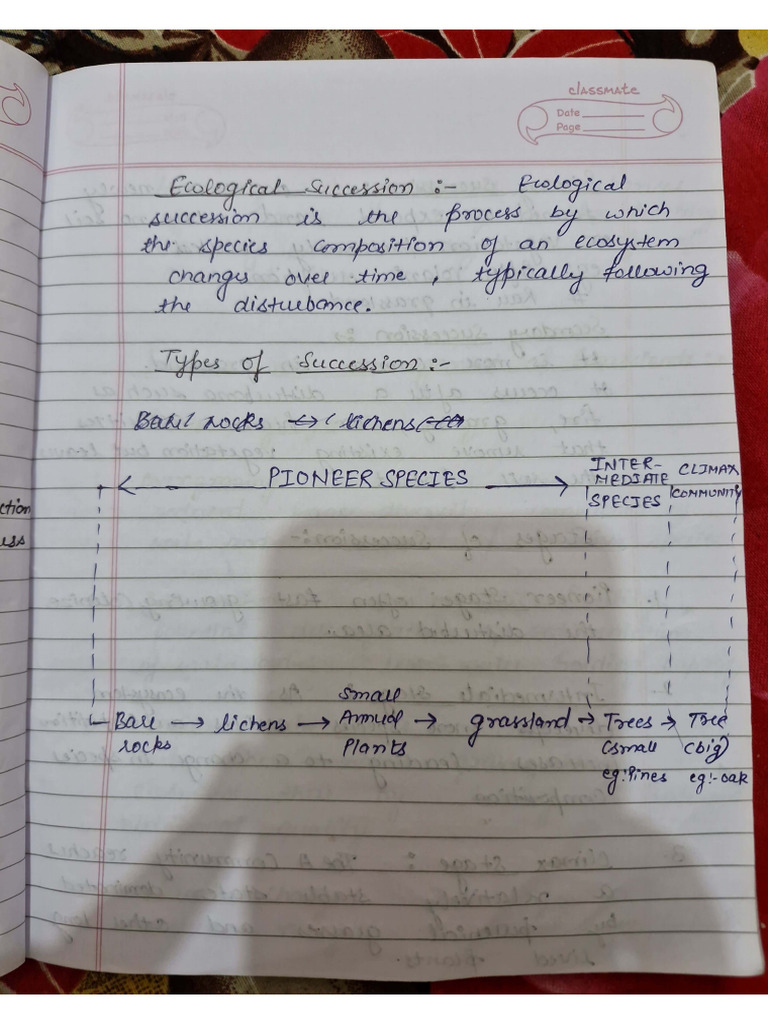 classmate
Date
Page
Ecological Succession :- Ecological
succession is the process by which
the species composition of an ecosystem
changes over time, typically following
the disturbance.
Types of Succession :-
rocks ↔ lichens
PIONEER SPECIES
INTER-
MEDIATE
SPECIES
CLIMAX
COMMUNITY
ction
ess
Bare → lichens → Small Annual Plants → grassland → Trees → Tree
rocks (small (big)
eg: Pines eg:- oak